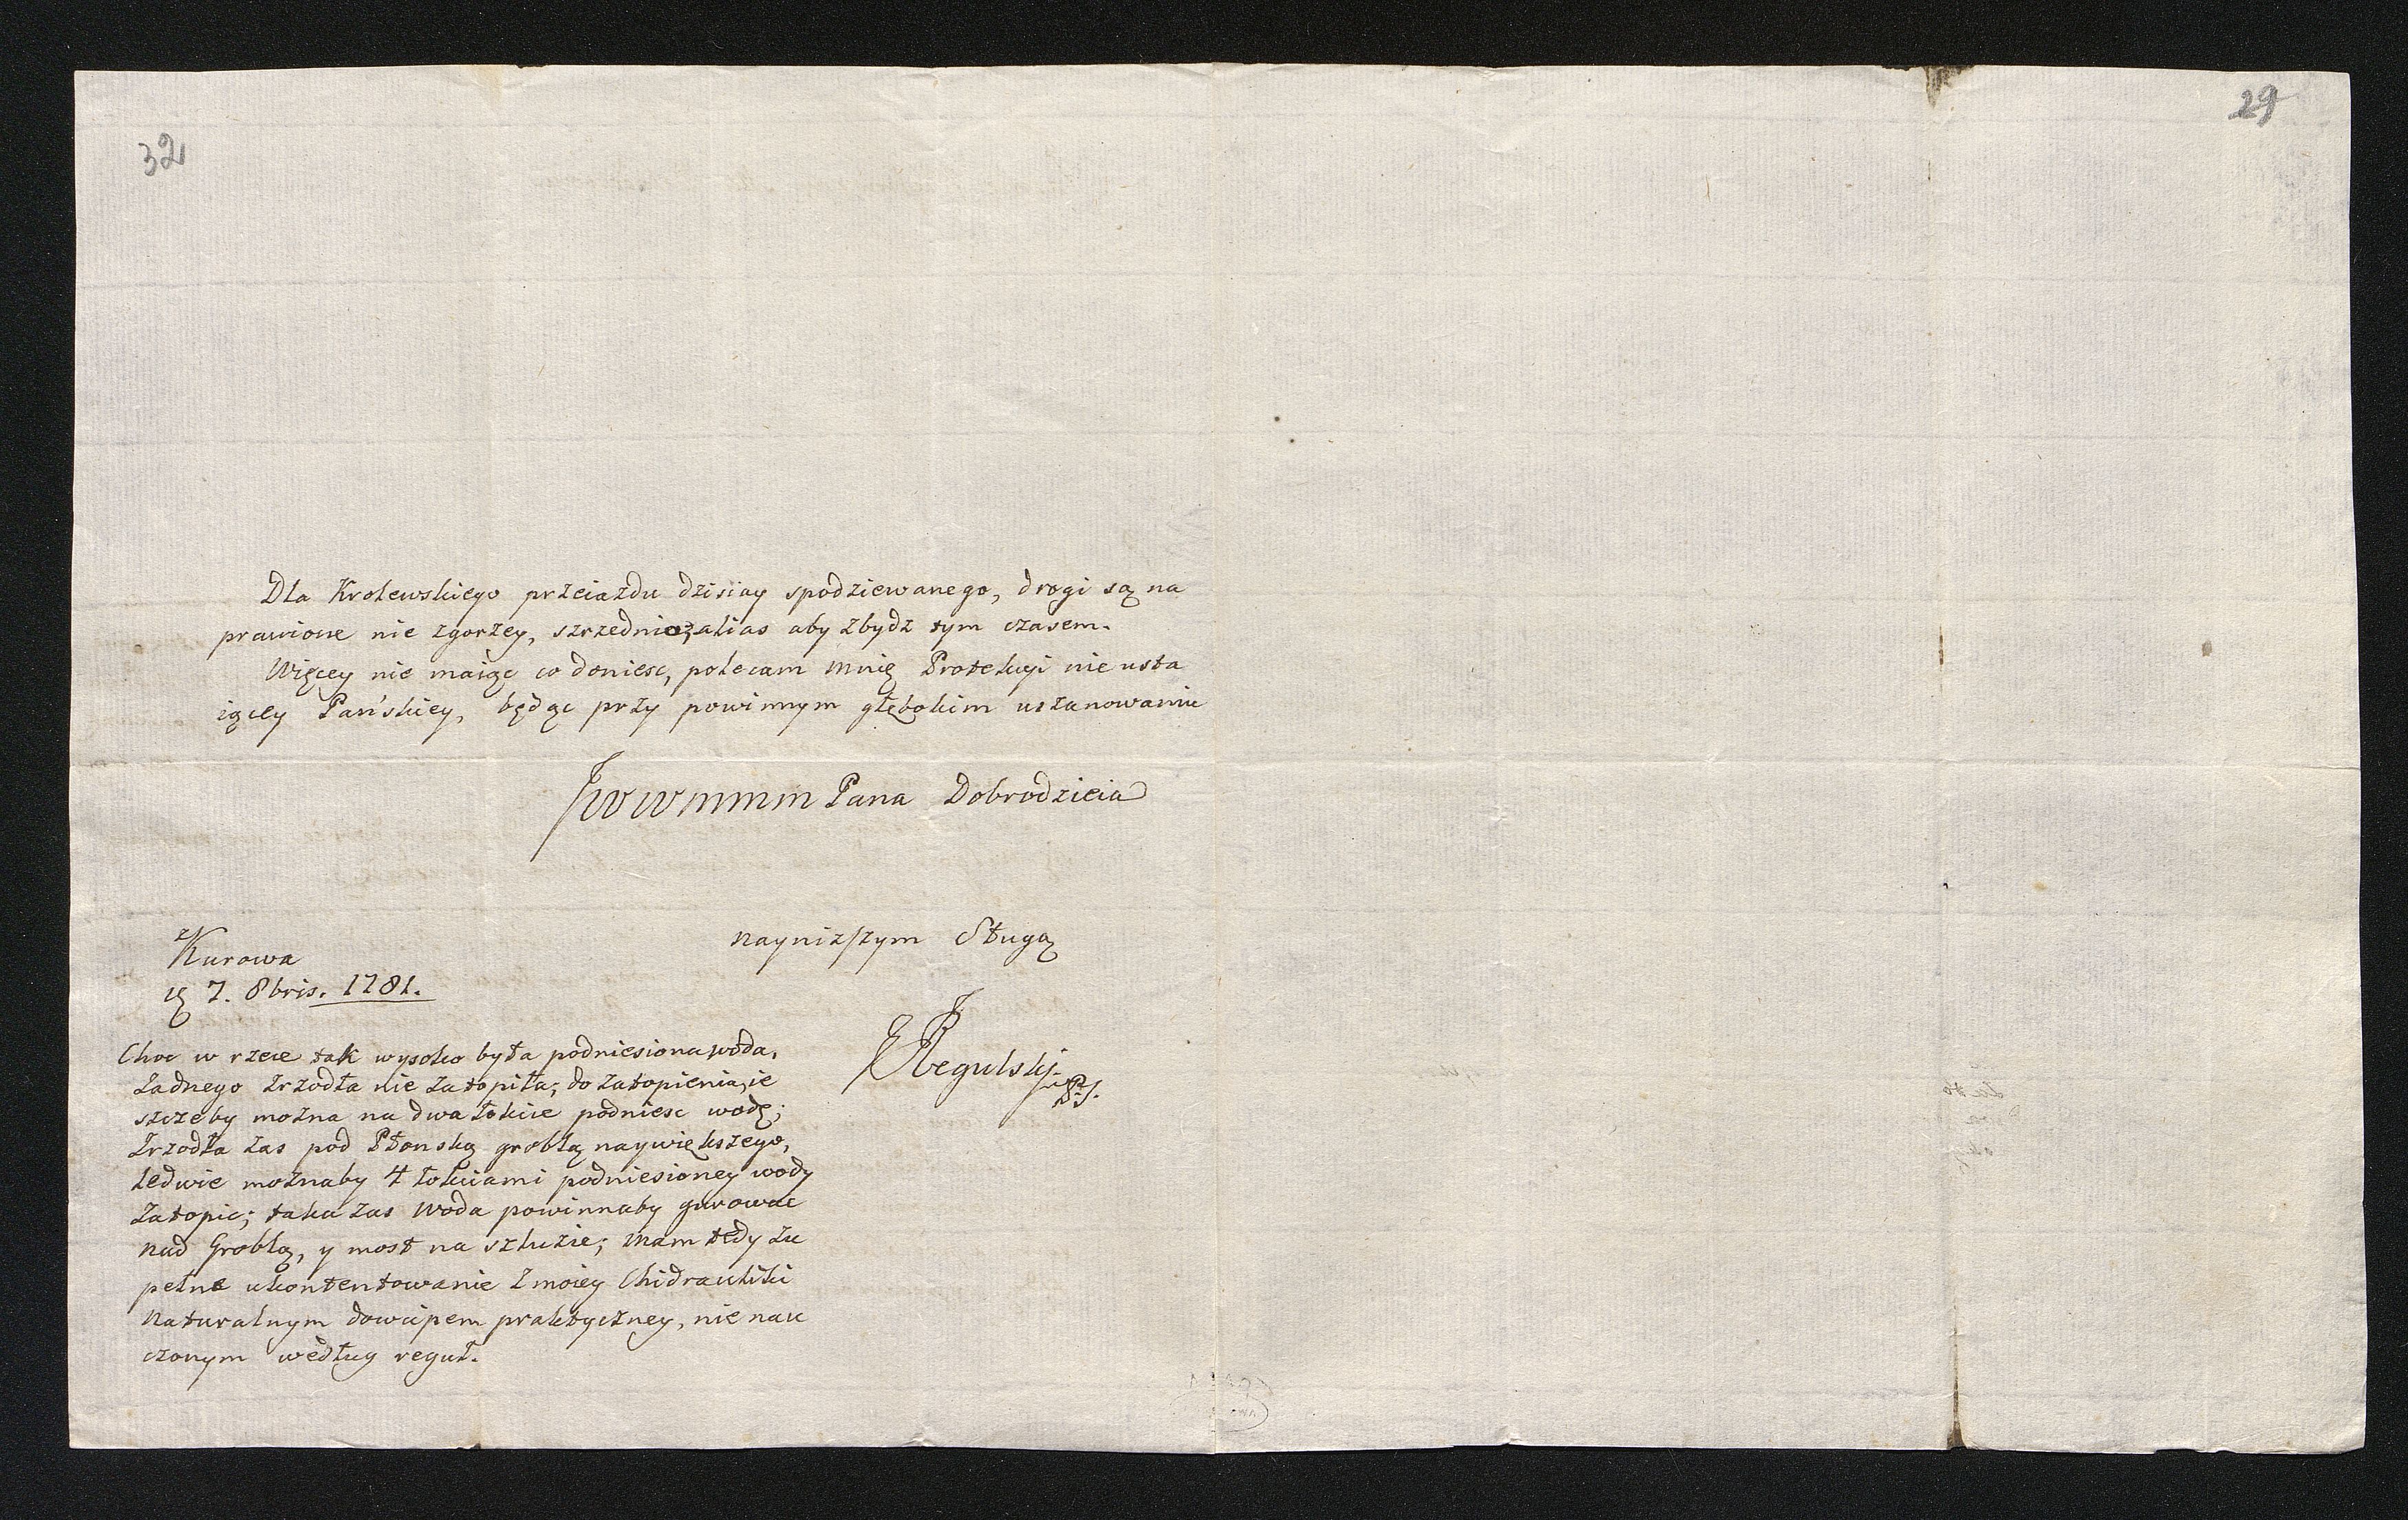 32
29
Dla Krolewskiego przeiazdu dzisiay spodziewanego, drogi są na
prawione nie zgorzey, szrzednie, alias aby zbydz tym czasem.
Więcey nie maiąc co doniesc, polecam mnię Protekcyi nie usta
iącey Pańskiey, będąc przy powinnym głębokim uszanowaniu
JWWMMM Pana Dobrodzieia
nayniższym Sługą
z Kurowa
7. 8bris. 1781.
Regulski
Choc w rzece tak wysoko była podniesiona woda,
żadnego zrzodła nie zatopiła; do zatopienia, ie
szczeby można na dwa łokcie podniesc wodę;
Zrzodła zas pod Płonską groblą naywiększego,
ledwie możnaby 4 łokciami podniesioney wody
zatopic; taka zas woda powinnaby gurowac
nad Groblą, y most na szluzie; mam tedy zu
pełne ukontentowanie z moiey Chidrauliki
naturalnym dowcipem praktyczney, nie nau
czonym według reguł.